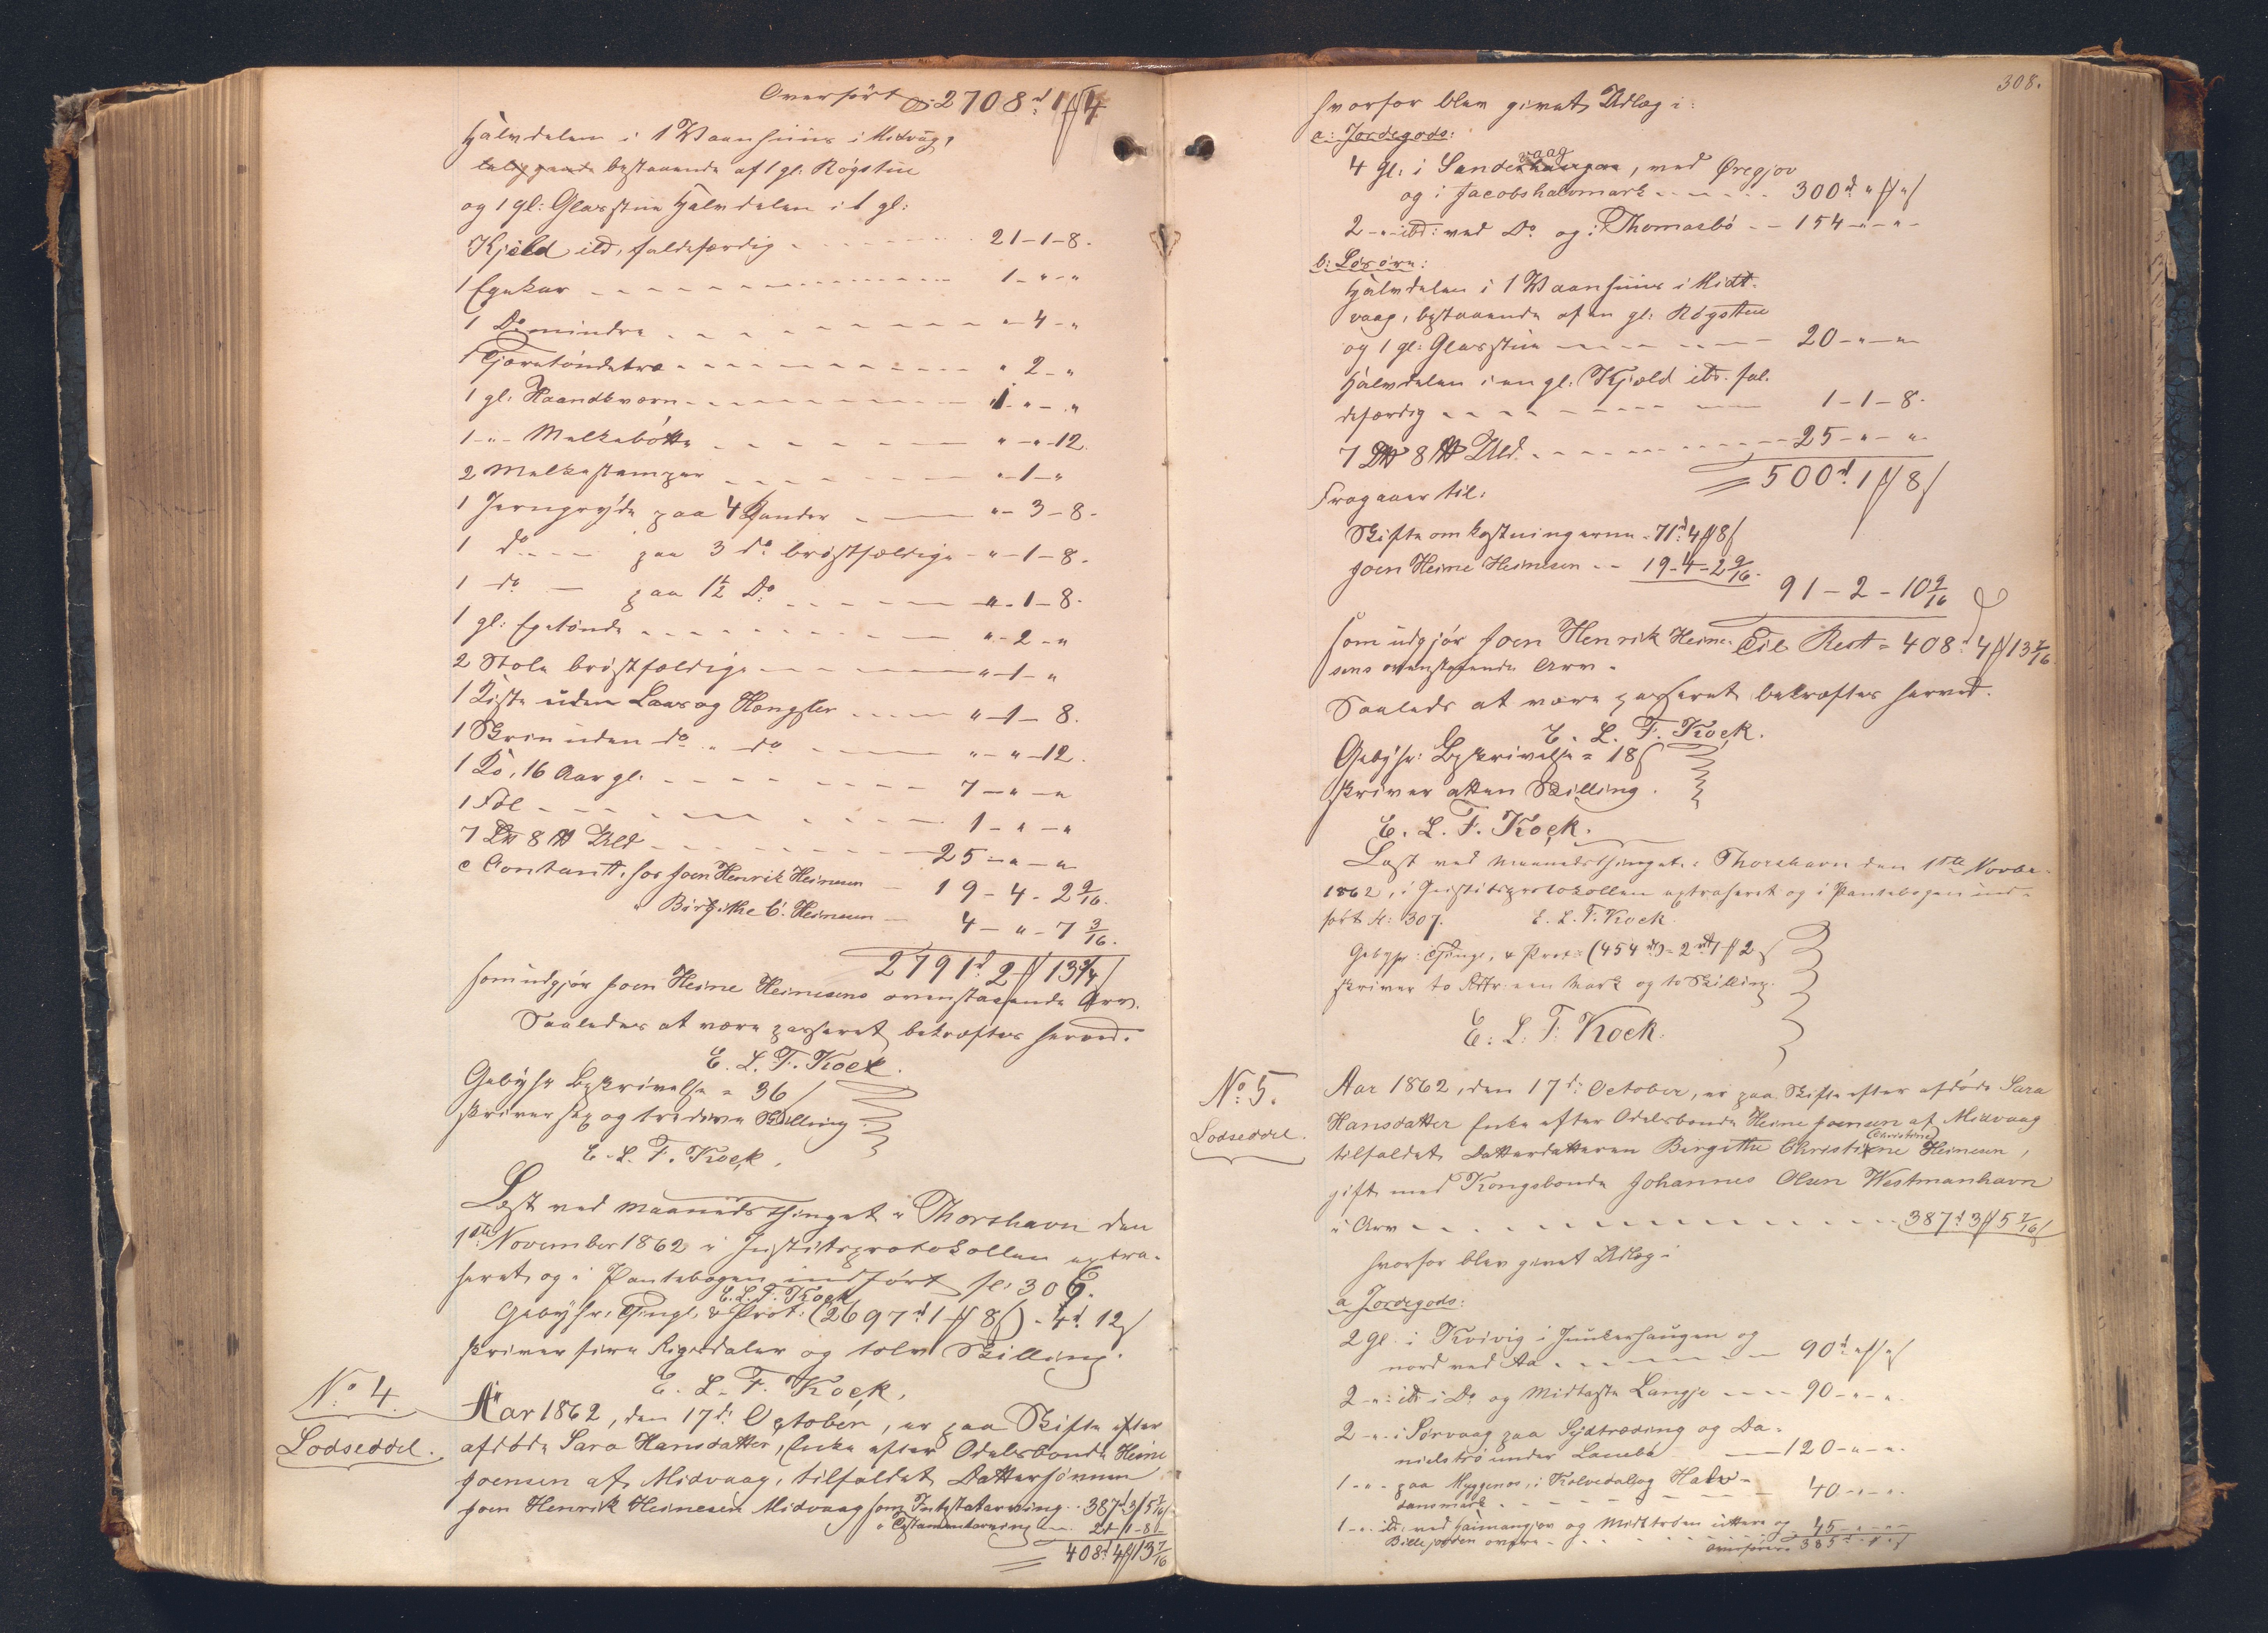 Overført 2708 rd 1 ℳ 4
Halvdelen i 1 Vaanhuus i Midvaag,
bestaaende af 1 gl: Røgstue
og 1 gl: Glasstue Halvdelen i 1 gl:
Kjeld ibd, faldefærdig 21-1-8.
1 Egekar 1-"-"
1 Do mindre "-4-"
1 Tjæretøndetræ " 2-"
1 gl: Haandkværn 1-"-"
1-"- Malkebøtte "-"-12.
2 Malkestamper "-1-"
1 Jerngryde paa 4 Kander "-3-8-
1 do paa 3 do brøstfældige "-1-8.
1 do — paa 1½ Do "-1-8.
1 gl: Egetønde "-2-"
2 Stole brøstfældige "-1-"
1 Kiste uden Laas og Hængsler "-1-8.
1 Skrin uden do " do "-"-12.
1 Ko, 16 Aar gl: 7-"-"
1 Føl 1-"-"
7 L℔ 8 ℔ Uld 25-"-"
c Contant, hos Joen Henrik Heinesen 19-4-2 9/16.
" Birgithe C. Heinesen 4-"-7 3/16.
2791 rd 2 ℳ 13 3/4 ſ
som udgjør Joen Heine Heinesens ovenstaaende Arv.
Saaledes at være passeret bekræftes herved.
E. L. F. Kock.
Gebyhr Beskrivelse = 36 ſ
skriver sex og tredive Skilling.
E. L. F. Kock.
Læst ved Maanedsthinget i Thorshavn den
1ste November 1862 i Justitsprotokollen extra-
heret og i Pantebogen indført fol: 306.
E. L. F. Kock
Gebyhr: Tingl. & Prot: (2697 rd 1 ℳ 8 ſ) - 4 rd 12 ſ
skriver fire Rigsdaler og tolv Skilling.
E. L. F. Kock.
No 4.
Lodseddel.
Aar 1862, den 17de October, er paa Skifte efter
afdøde Sara Hansdatter, Enke efter Odelsbonde Heine
Joensen af Midvaag, tilfaldet Dattersønnen
Joen Henrik Heinesen Midvaag som Intestatarving 387 rd 3 ℳ 5 7/16 ſ
" Testamentarving 21-1-8-
408 rd 4 ℳ 13 7/16
308.
hvorfor blev givet Udlæg i:
a: Jordegods:
4 gl: i Sandevaag, ved Øregjov
og i Jacobshalvmark 300 rd " ℳ " ſ
2-"- ibd: ved Do og i Thomasbø 154-"-"-
b: Løsøre:
Halvdelen i 1 Vaanhuus i Midt-
vaag, bestaaende af en gl: Røgstue
og 1 gl: Glasstue 20-"-"-
Halvdelen i en gl: Kjæld ibd. fal-
defærdig 1-1-8.
7 L℔ 8 ℔ Uld 25-"-"-
500 rd 1 ℳ 8 ſ
Fragaaer til:
Skifteomkostningerne 71 rd 4 ℳ 8 ſ
Joen Heine Heinesen 19-4-2 9/16.
91-2-10 9/16
Til Rest = 408 rd 4 ℳ 13 7/16
som udgjør Joen Henrik Heine-
sens ovenstaaende Arv.
Saaleds at være passeret bekræftes herved.
E. L. F. Kock.
Gebyhr: Beskrivelse = 18 ſ
skriver atten Skilling.
E. L. F. Kock.
Læst ved Maanedsthinget i Thorshavn den 1ste Novbe.
1862, i Justitsprotokollen extraheret og i Pantebogen ind-
ført fol: 307. E. L. F. Kock.
Gebyhr: Tingl. & Prot: (454 rd) = 2 rd 1 ℳ 2 ſ
skriver to Rdlr: een Mark og to Skilling.
E. L. F. Kock.
No 5.
Lodseddel.
Aar 1862, den 17de October, er paa Skifte efter afdøde Sara
Hansdatter Enke efter Odelsbonde Heine Joensen af Midvaag
tilfaldet Datterdatteren Birgithe Christine Heinesen,
gift med Kongsbonde Johannes Olsen Westmanhavn
i Arv 387 rd 3 ℳ 5 7/16 ſ
hvorfor blev givet Udlæg i
a Jordegods:
2 gl: i Kvivig i Junkerhaugen og
nord ved Aa 90 rd " ℳ " ſ
2-"- ibd: i Do og Midtaste Langje 90-"-"-
2-"- i Sørvaag paa Sydtræding og Da-
nielstrø under Lambø 120-"-"-
1-"- paa Myggenæs, i Kolvedal og Halv-
dansmark 40-"-"-
1-"- ibd: ved Haimangjov og Midttrøen uttere og 45-"-"-
Billejorden øvere
overføres 385 rd " ℳ " ſ